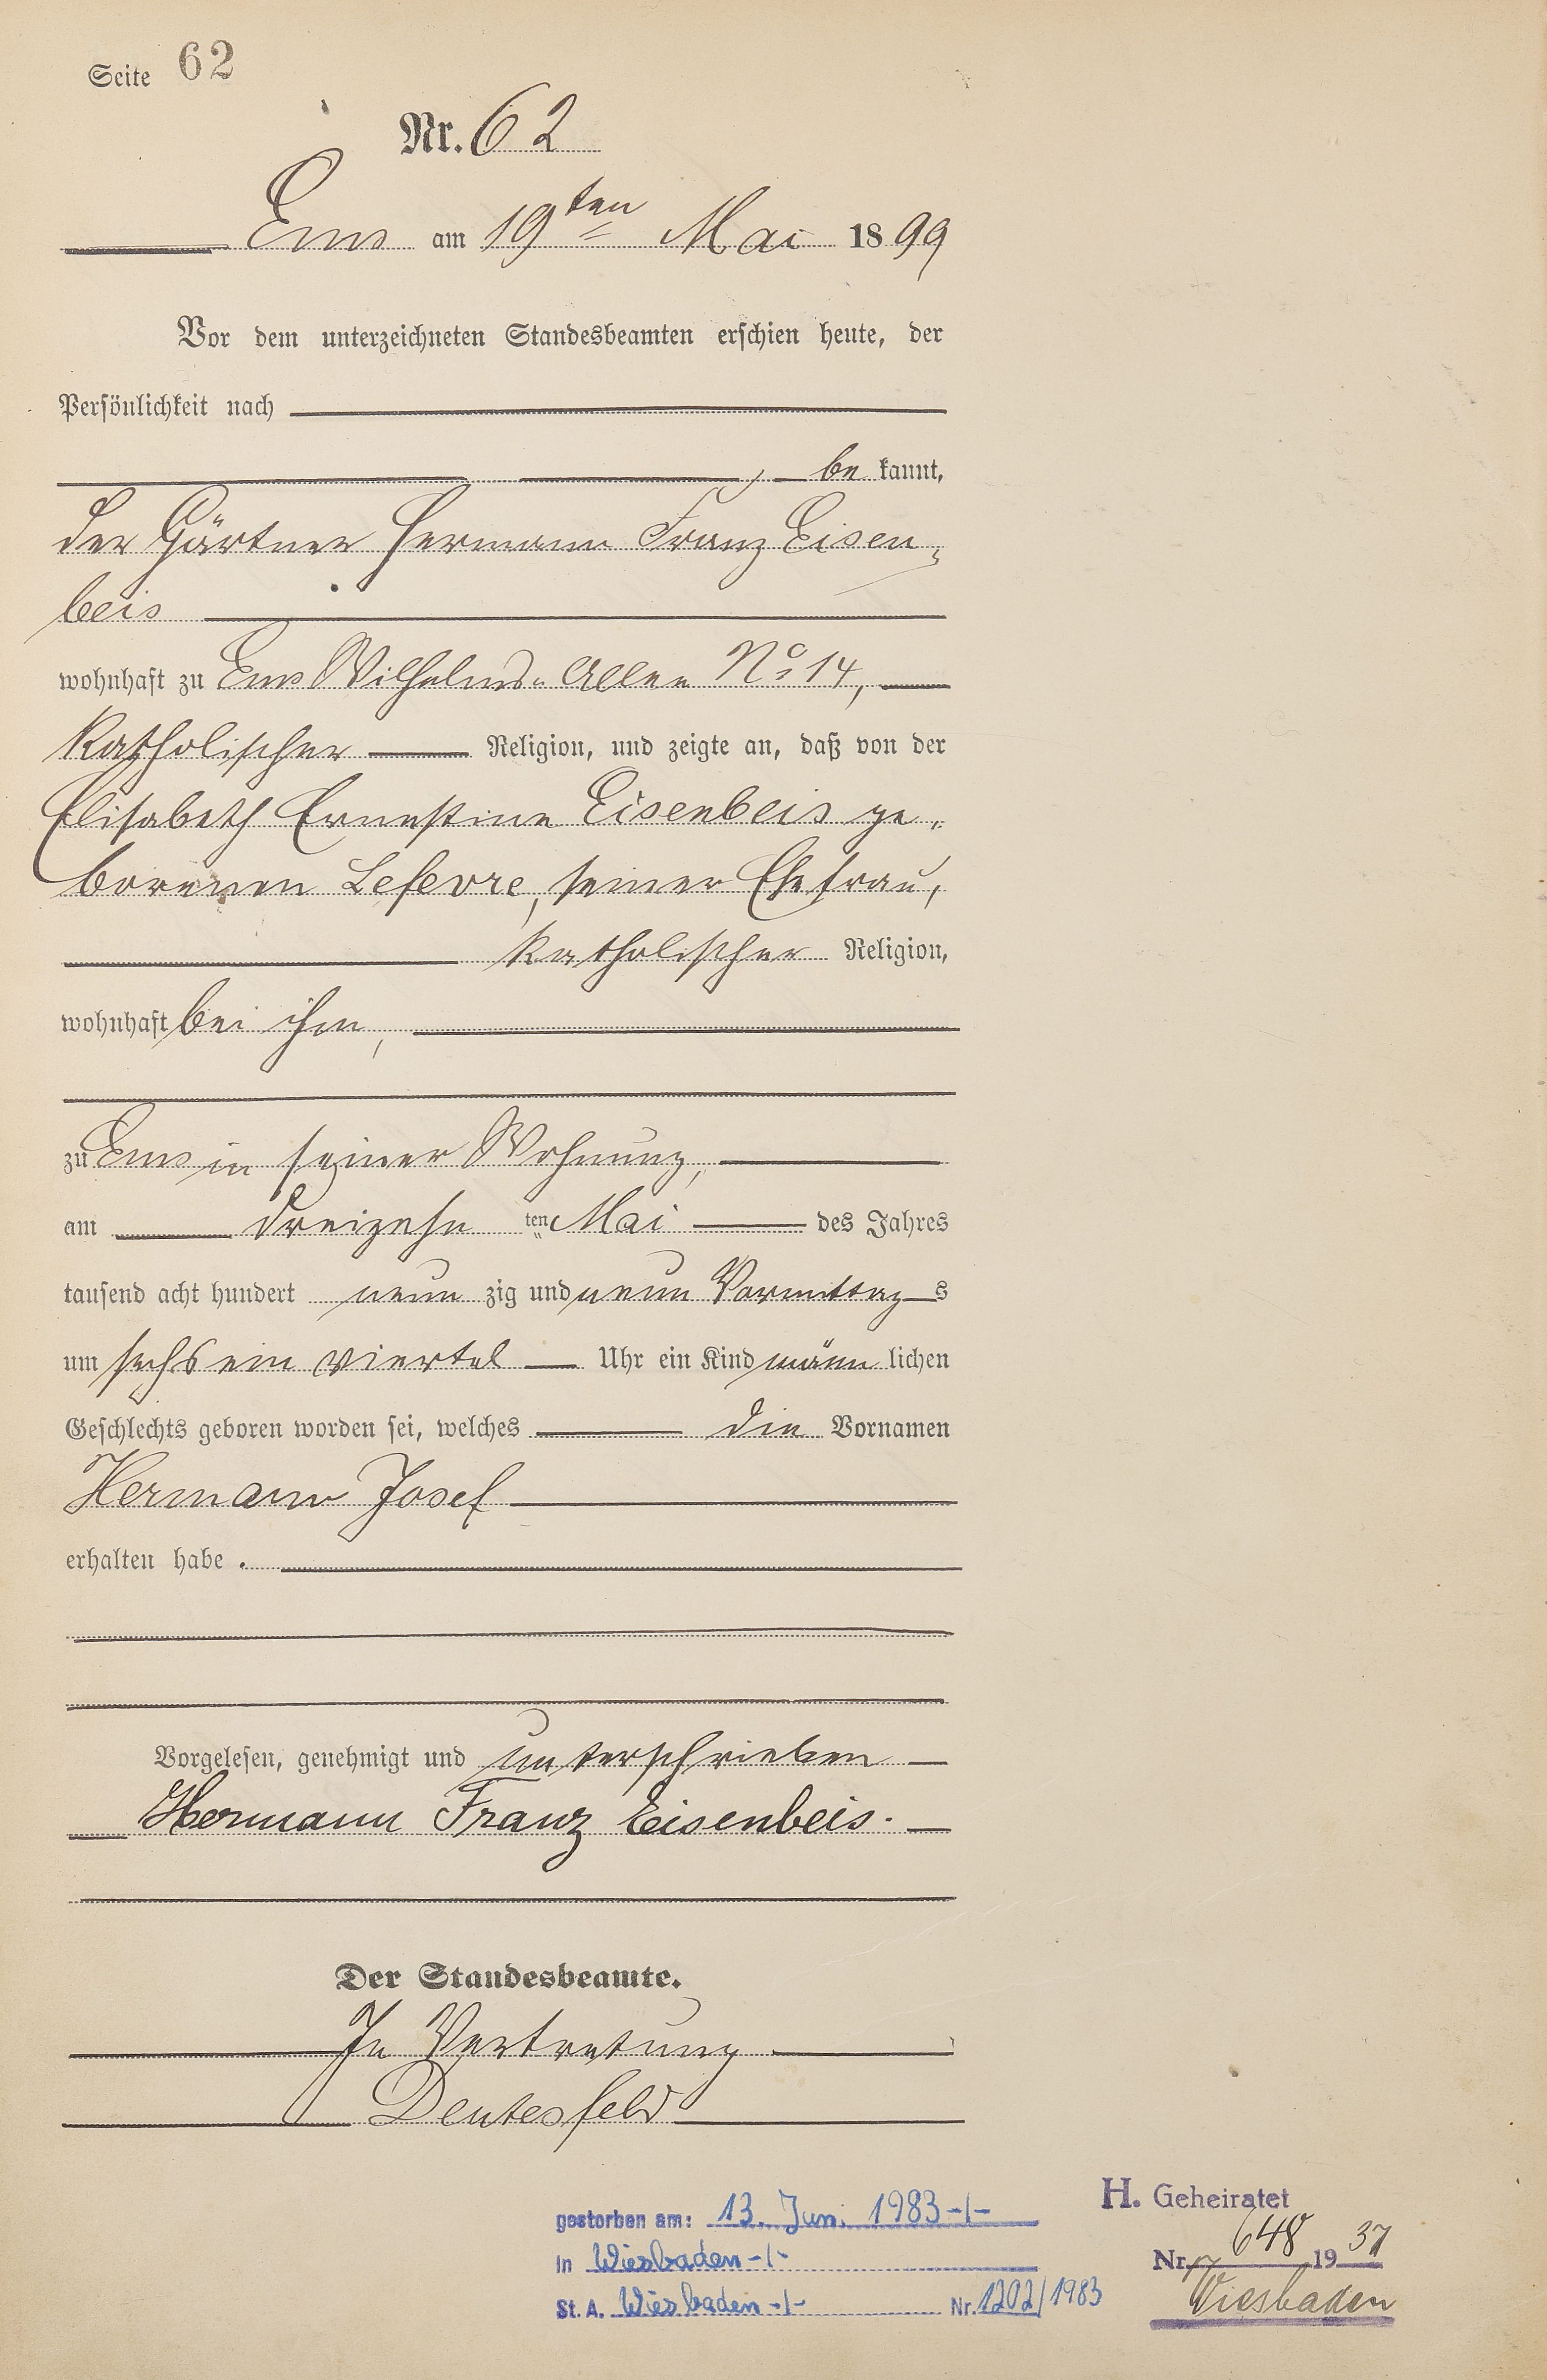 Seite 62
Nr. 62
Ems am 19ten Mai 1899
Vor dem unterzeichneten Standesbeamten erschien heute, der
Persönlichkeit nach
, be kannt,
der Gärtner Hermann Franz Eisen-
beis
wohnhaft zu Ems Wilhelms-Allee No 14,
katholischer Religion, und zeigte an, daß von der
Elisabeth Ernestine Eisenbeis ge-
borenen Lefevre, seiner Ehefrau,
katholischer Religion,
wohnhaft bei ihm,
zu Ems in seiner Wohnung,
am dreizehn ten Mai des Jahres
tausend acht hundert neun zig und neun Vormittag s
um sechs ein viertel Uhr ein Kind männ lichen
Geschlechts geboren worden sei, welches die Vornamen
Hermann Josef
erhalten habe.
Vorgelesen, genehmigt und unterschrieben
Hermann Franz Eisenbeis.
Der Standesbeamte.
In Vertretung
Deutesfeld
gestorben am: 13. Juni 1983-/-
in Wiesbaden-/-
St. A. Wiesbaden-/- Nr. 1202/1983
H. Geheiratet
Nr. 648 1937
Wiesbaden